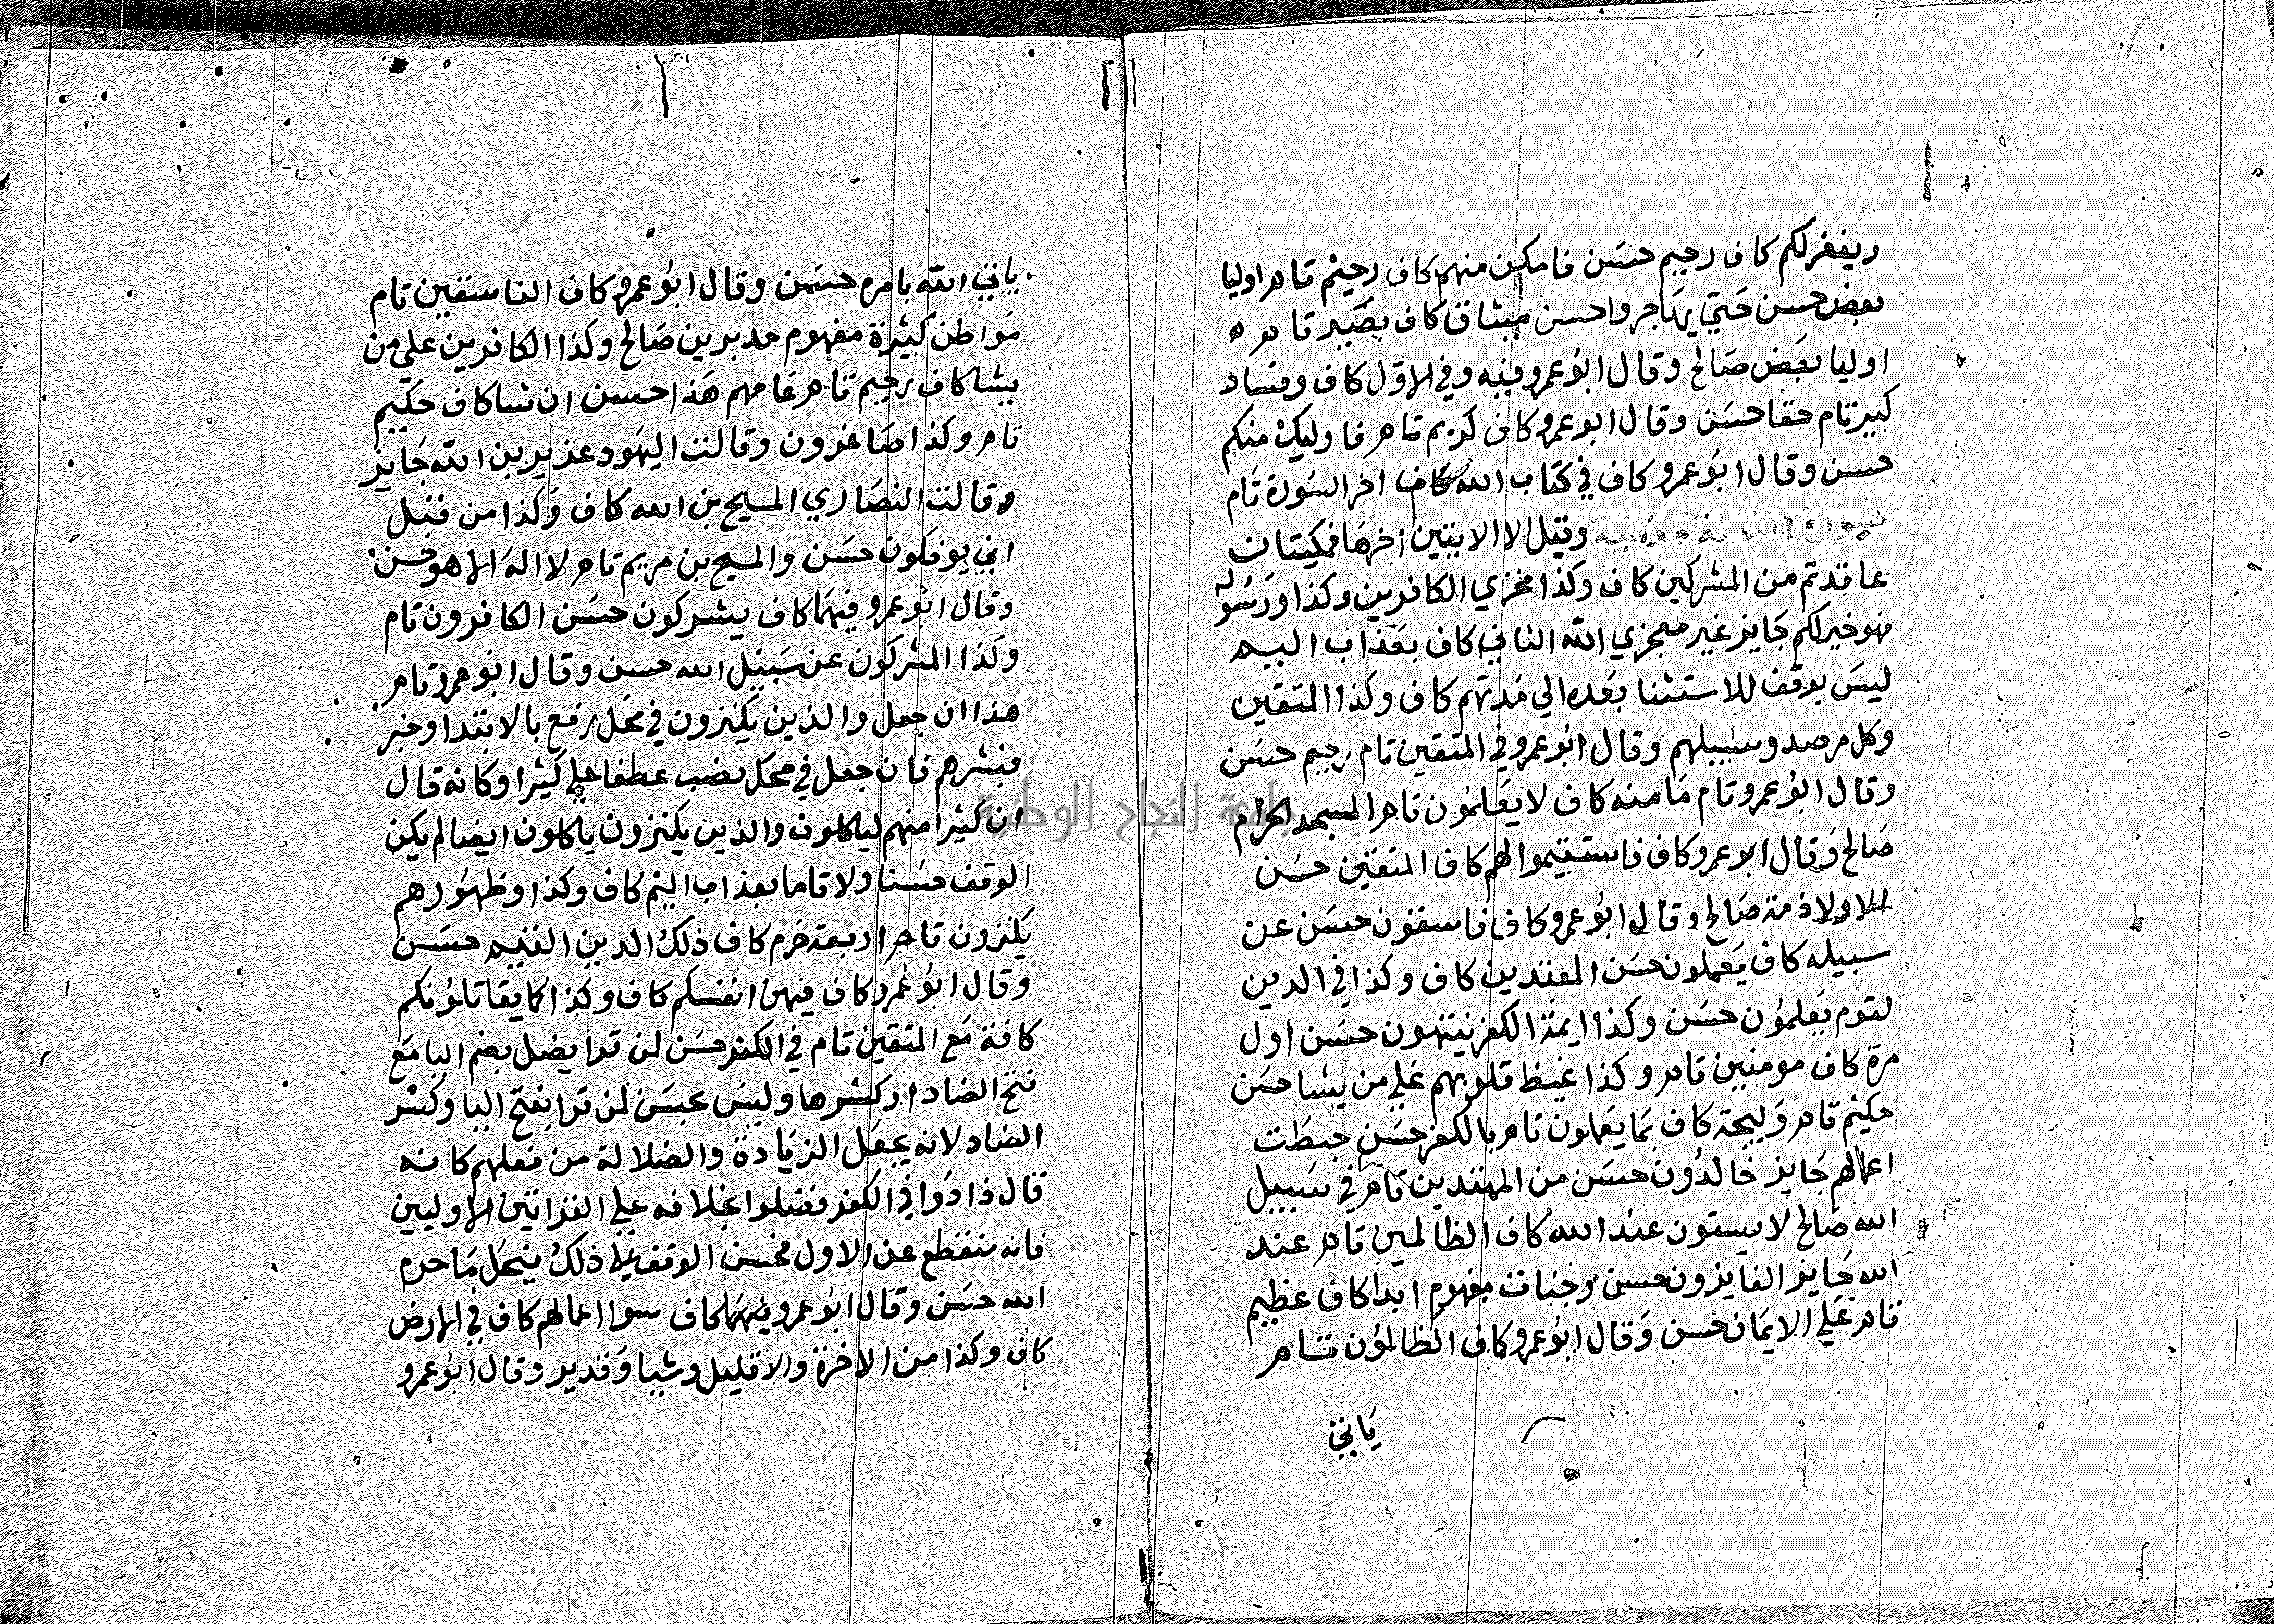 ويغفر لكم كاف رحيم حسن فامكن منهم كاف رحيم تام اوليا
بعض حسن حتي يهاجروا حسن ميثاق كاف بصير تام ه
اوليا بعض صالح وقال ابو عمرو فيه وفي الاول كاف وفساد
كبير تام حقا حسن وقال ابو عمرو كاف كريم تام فاوليك منكم
حسن وقال ابو عمرو كاف في كتاب الله كاف اخر السورة تام
وقيل الا الايتين اخرها فمكيتان
عاقدتم من المشركين كاف وكذا مخزي الكافرين وكذا ورسوله
فهو خير لكم جايز غير معجزي الله الثاني كاف بعذاب اليم
ليس بوقف للاستثنا بعده الي مدتهم كاف وكذا المتقين
وكل مرصد وسبيلهم وقال ابو عمرو في المتقين تام رحيم حسن
وقال ابو عمرو تام مامنه كاف لا يعلمون تام المسجد الحرام
صالح وقال ابو عمرو كاف فاستقيموا لهم كاف المتقين حسن
الا ولا ذمة صالح وقال ابو عمرو كاف فاسقون حسن عن
سبيله كاف يعملون حسن المعتدين كاف وكذا في الدين
لقوم يعلمون حسن وكذا ايمة الكفر ينتهون حسن اول
مرة كاف مومنين تام وكذا غيظ قلوبهم علي من يشا حسن
حكيم تام وليجة كاف بما يعملون تام بالكفر حسن حبطت
اعمالهم جايز خالدون حسن من المهتدين تام في سبيل
الله صالح لا يستون عند الله كاف الظالمين تام عند
الله جايز الفايزون حسن وجنات مفهوم ابدا كاف عظيم
تام علي الايمان حسن وقال ابو عمرو كاف الظالمون تام
ياتي
ياتي الله بامره حسن وقال ابو عمرو كاف الفاسقين تام
مواطن كثيرة مفهوم مدبرين صالح وكذا الكافرين علي من
يشا كاف رحيم تام عامهم هذا حسن ان شا كاف حكيم
تام وكذا صاغرون وقالت اليهود عزير بن الله جايز
وقالت النصاري المسيح بن الله كاف وكذا من قبل
اني يوفكون حسن والمسيح بن مريم تام لا اله الا هو حسن
وقال ابو عمرو فيهما كاف يشركون حسن الكافرون تام
وكذا المشركون عن سبيل الله حسن وقال ابو عمرو تام
هذا ان جعل والذين يكنزون في محل رفع بالابتدا وخبر
فبشرهم فان جعل في محل نصب عطفا علي كثيرا وكانه قال
ان كثيرا منهم لياكلون والذين يكنزون ياكلون ايضا لم يكن
الوقف حسنا ولا تاما بعذاب اليم كاف وكذا وظهورهم
يكنزون تام اربعة حرم كاف ذلك الدين القيم حسن
وقال ابو عمرو كاف فيهن انفسكم كاف وكذا كما يقاتلونكم
كافة مع المتقين تام في الكفر حسن لمن قرا يضل بضم اليا مع
فتح الضاد او كسرها وليس بحسن لمن قرا بفتح اليا وكسر
الضاد لانه يجعل الزيادة والضلالة من فعلهم كانه
قال زادوا في الكفر فضلوا بخلافه علي القراتين الاوليين
فانه منقطع عن الاول فحسن الوقف علي ذلك فيحل ما حرم
الله حسن وقال ابو عمرو فيهما كاف سوا اعمالهم كاف في الارض
كاف وكذا من الاخرة والا قليل وشيا وقدير وقال ابو عمرو
جامعة النجاح الوطنية